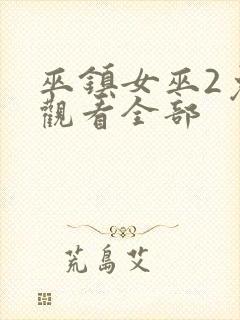 巫鎮女巫2
觀看全部
荒島艾